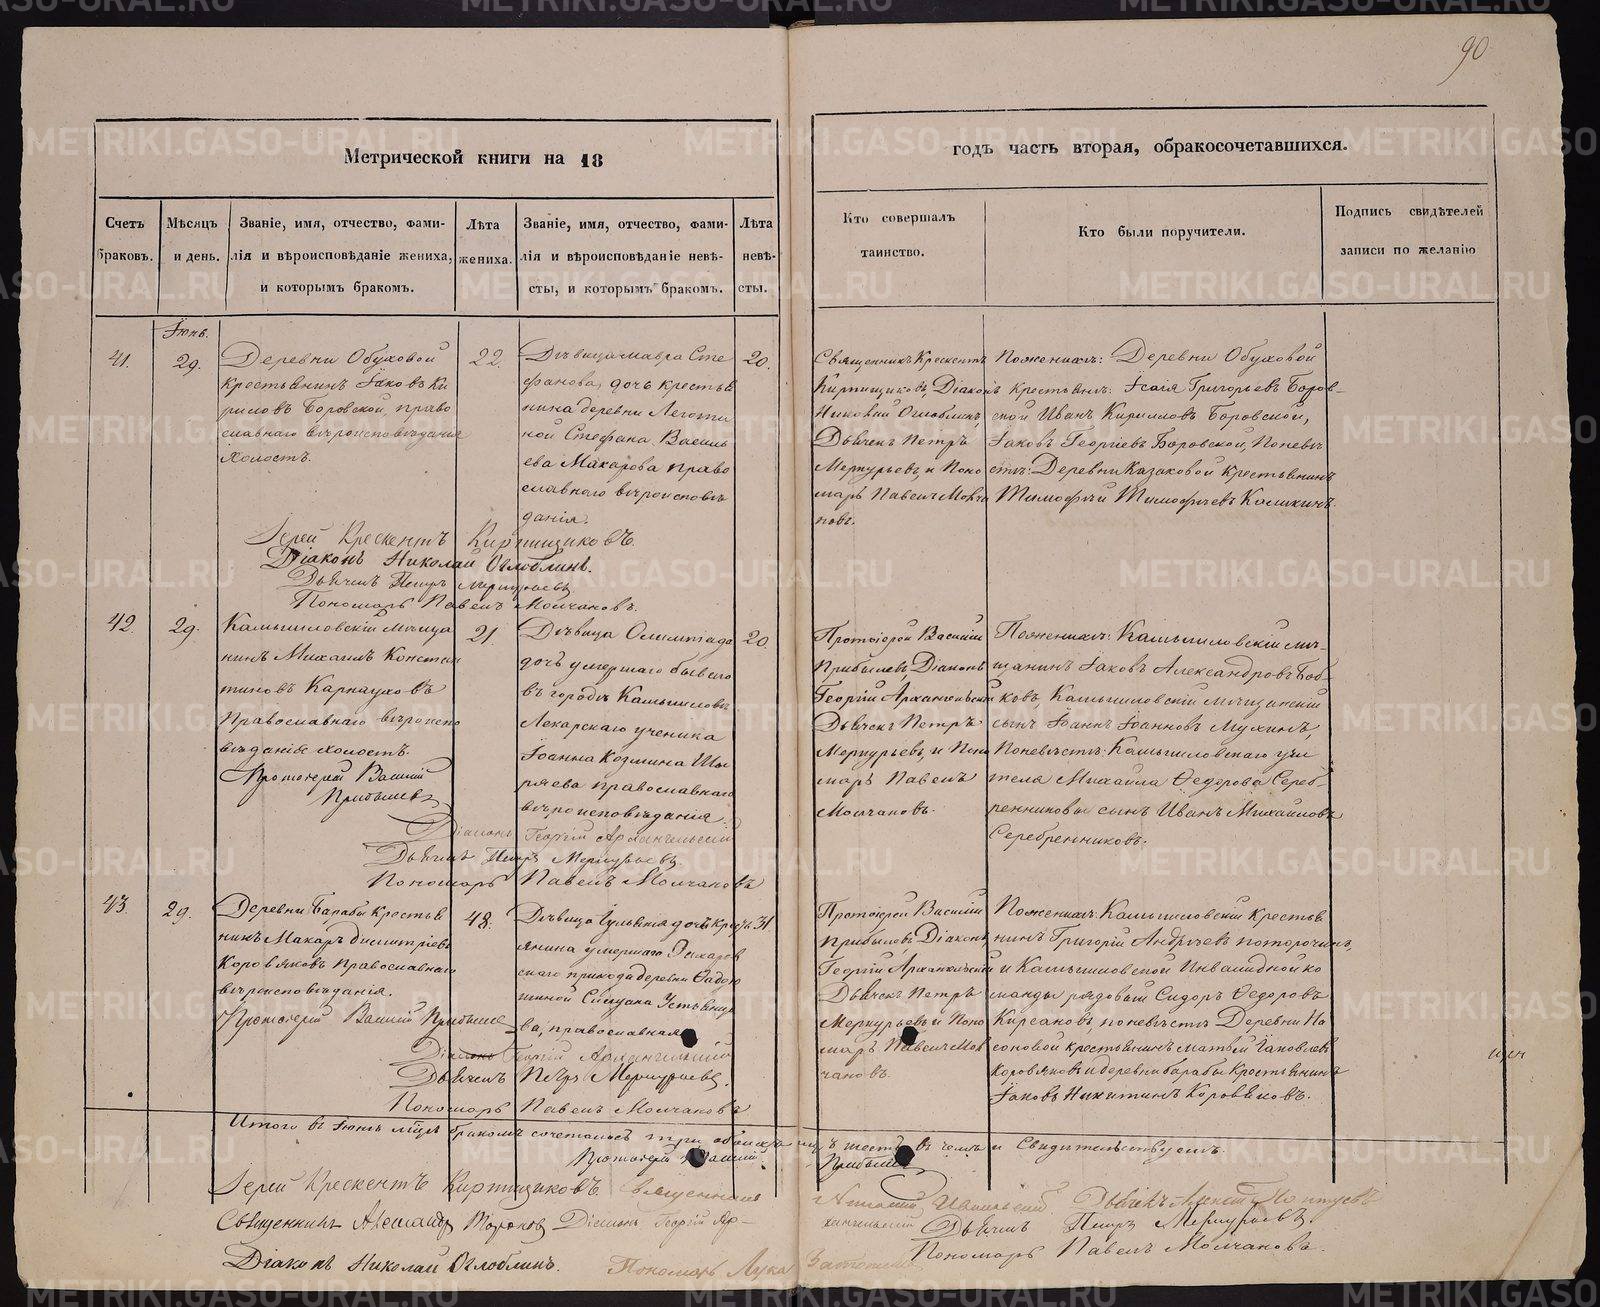 90
Метрической книги на 18
годъ часть вторая, обракосочетавшихся.
Счетъ браковъ.
Мѣсяцъ и день.
Званіе, имя, отчество, фами-
лія и вѣроисповѣданіе жениха,
и которымъ бракомъ.
Лѣта жениха.
Званіе, имя, отчество, фами-
лія и вѣроисповѣданіе невѣ-
сты, и которымъ бракомъ.
Лѣта невѣ-
сты.
Кто совершалъ
таинство.
Кто были поручители.
Подпись свидѣтелей
записи по желанію
Іюнь.
41.
29.
Деревни Обуховой
крестьянинъ Іаковъ Ки
риловъ Боровской, право
славнаго вѣроисповѣданія
холостъ.
22.
Дѣвица Мавра Сте
фанова, дочь крестья
нина деревни
ной Стефана Василь
ева Макарова право
славнаго вѣроисповѣ
данія.
20.
Священникъ Крескентъ
Кирпищиковъ, Діаконъ
Николай Оглоблинъ,
Дьячекъ Петръ
Меркурьевъ, и Поно
марь Павелъ Молча
новъ.
Поженихѣ: Деревни Обуховой
крестьяне: Исаія Григорьевъ Боров-
ской Иванъ Кирилловъ Боровской,
Іаковъ Георгіевъ Боровской, Поневѣ
стѣ: Деревни Казаковой крестьянинъ
Тимофей Тимофѣевъ Каликинъ.
Іерей Крескентъ Кирпищиковъ.
Діаконъ Николай Оглоблинъ.
Дьячекъ Петръ Меркурьевъ
Пономарь Павелъ Молчановъ.
42.
29.
Камышловскій мѣща
нинъ Михаилъ Констан
тиновъ Карнауховъ
Православнаго вѣроиспо
вѣданія холостъ.
Протоіерей Василій
Прибылевъ
21.
Дѣвица Олимпіада
дочь умершаго бывшаго
въ городѣ Камышловѣ
Лекарскаго ученика
Іоанна Козмина
ряева православнаго
вѣроисповѣданія.
20
Протоіерей Василій
Прибылевъ, Діаконъ
Георгій Архангельскій
Дьячекъ Петръ
Меркурьевъ, и Поно
марь Павелъ
Молчановъ.
Поженихѣ: Камышловскій мѣ-
щанинъ Іаковъ Александровъ Боб-
ковъ, Камышловскій мѣщанскій
сынъ Іоаннъ Іоанновъ Мухинъ,
Поневѣстѣ: Камышловскаго учи
теля Михаила Ѳедорова Сереб-
ренникова сынъ Иванъ Михайловъ
Серебренниковъ.
Діаконъ Георгій Архангельскій
Дьячекъ Петръ Меркурьевъ.
Пономарь Павелъ Молчановъ
43.
29.
Деревни Барабы крестья
нинъ Макаръ Димитріевъ
Коровяковъ Православнаго
вѣроисповѣданія.
Протоіерей Василій Прибылевъ
48.
Дѣвица дочь кресть
янина умершаго
скаго прихода деревни
ва, православная
31
Протоіерей Василій
Прибылевъ, Діаконъ
Георгій Архангельскій
Дьячекъ Петръ
Меркурьевъ и Поно
марь Павелъ Мол
чановъ.
Поженихѣ: Камышловскій крестья
нинъ Григорій Андреевъ Поторочинъ,
и Камышловской Инвалидной ко
манды рядовый Сидоръ Ѳедоровъ
Кирсановъ, поневѣстѣ Деревни На
соновой крестьянинъ Матвѣй Іаковлевъ
Коровяковъ и деревни Барабы крестьянинъ
Іаковъ Никитинъ Коровяковъ.
Діаконъ Георгій Архангельскій
Дьячекъ Петръ Меркурьевъ.
Пономарь Павелъ Молчановъ
Итого въ Іюнѣ мѣсяцѣ бракомъ сочеталось три шесть въ чемъ и Свидительствуемъ.
Протоіерей Василій Прибылевъ
Іерей Крескентъ Кирпищиковъ. Священникъ
Священникъ Александръ Діаконъ Георгій Ар-
хангельскій Дьячекъ Петръ Меркурьевъ.
Діаконъ Николай Оглоблинъ. Пономарь Лука
Пономарь Павелъ Молчановъ.
METRIKI.GASO-URAL.RU